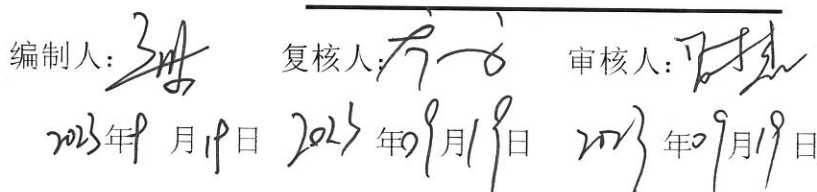 编制人： 复核人： 审核人：
2023年9月19日 2023年09月19日 2023年09月19日